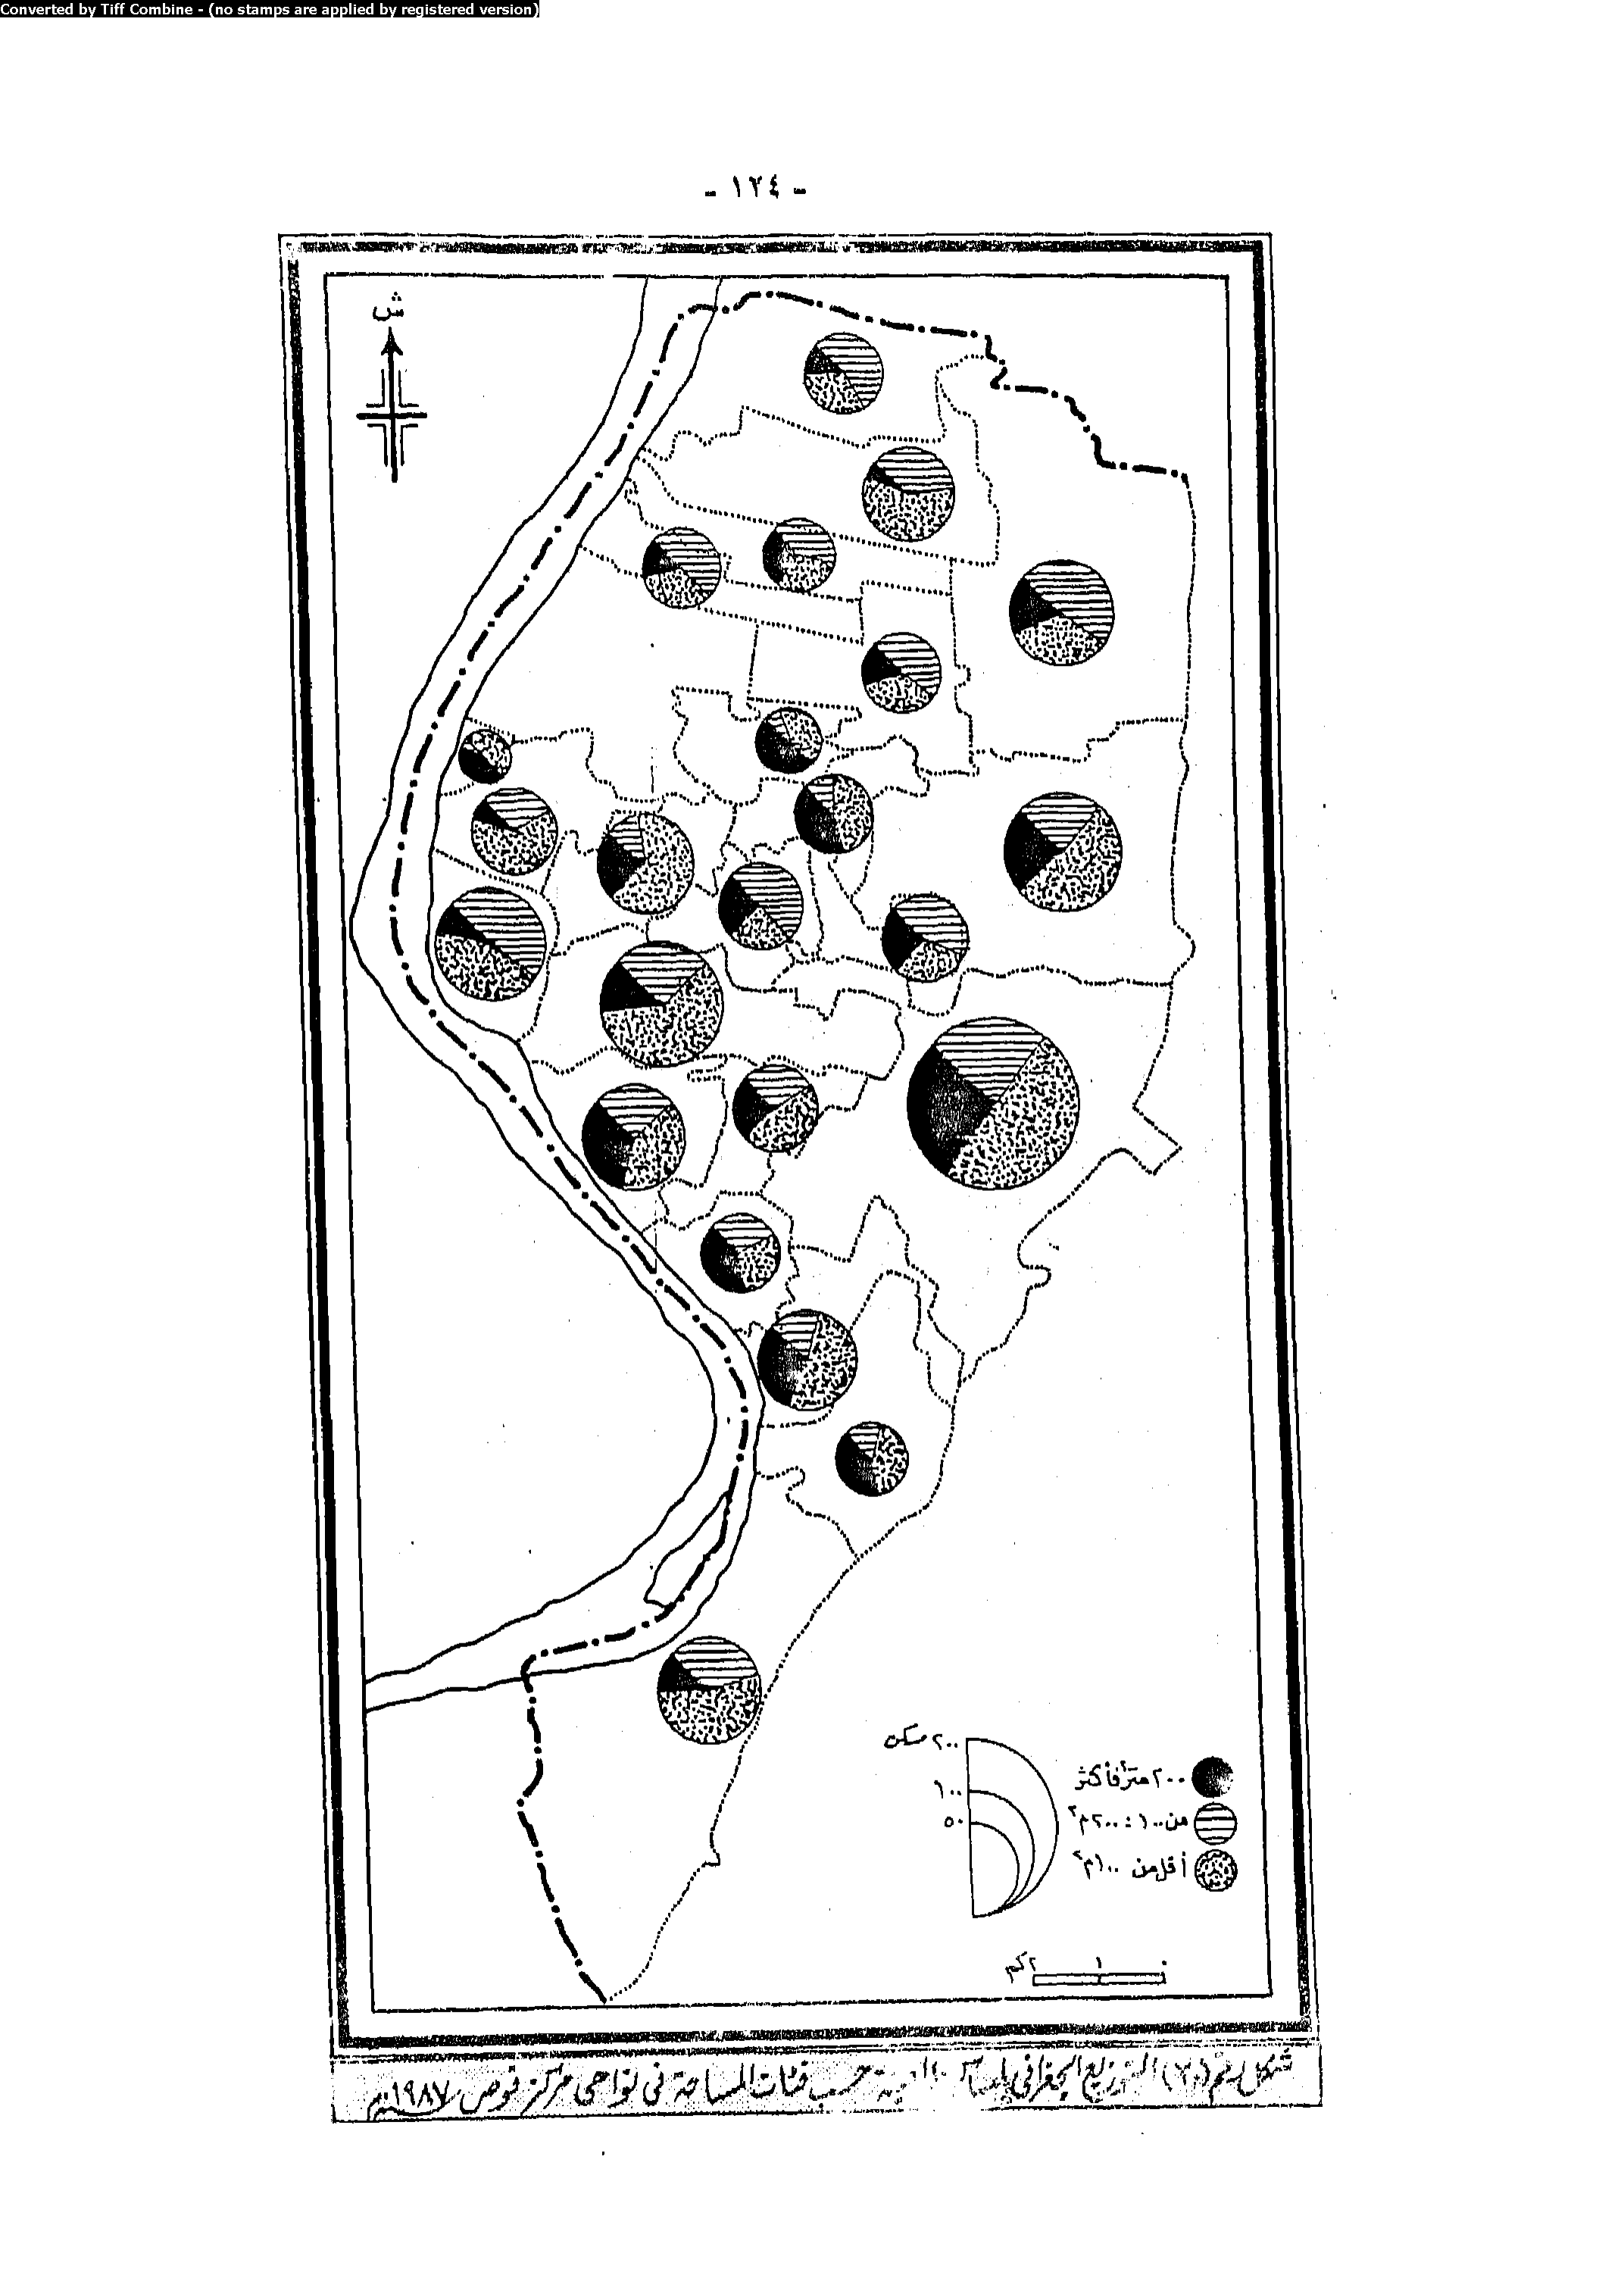 Converted by Tiff Combine - (no stamps are applied by registered version)
- ١٢٤ -
ش
٢٠٠ مسكن
١٠٠
٥٠
٢٠٠ متر٢ فأكثر
من ١٠٠ : ٢٠٠ م٢
أقل من ١٠٠ م٢
٠ ١ ٢ كم
شكل رقم التوزيع الجغرافي حسب فئات المساحة في نواحي مركز قوص ١٩٨٧م